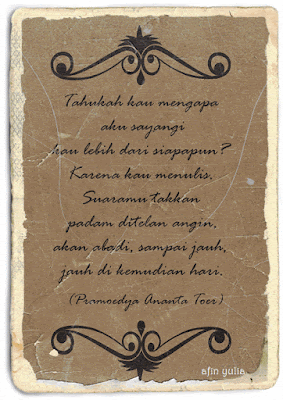 Tahukah kau mengapa
aku sayangi
kau lebih dari siapapun?
Karena kau menulis.
Suaramu takkan
padam ditelan angin,
akan abadi, sampai jauh,
jauh di kemudian hari.
(Pramoedya Ananta Toer)
afin yulia